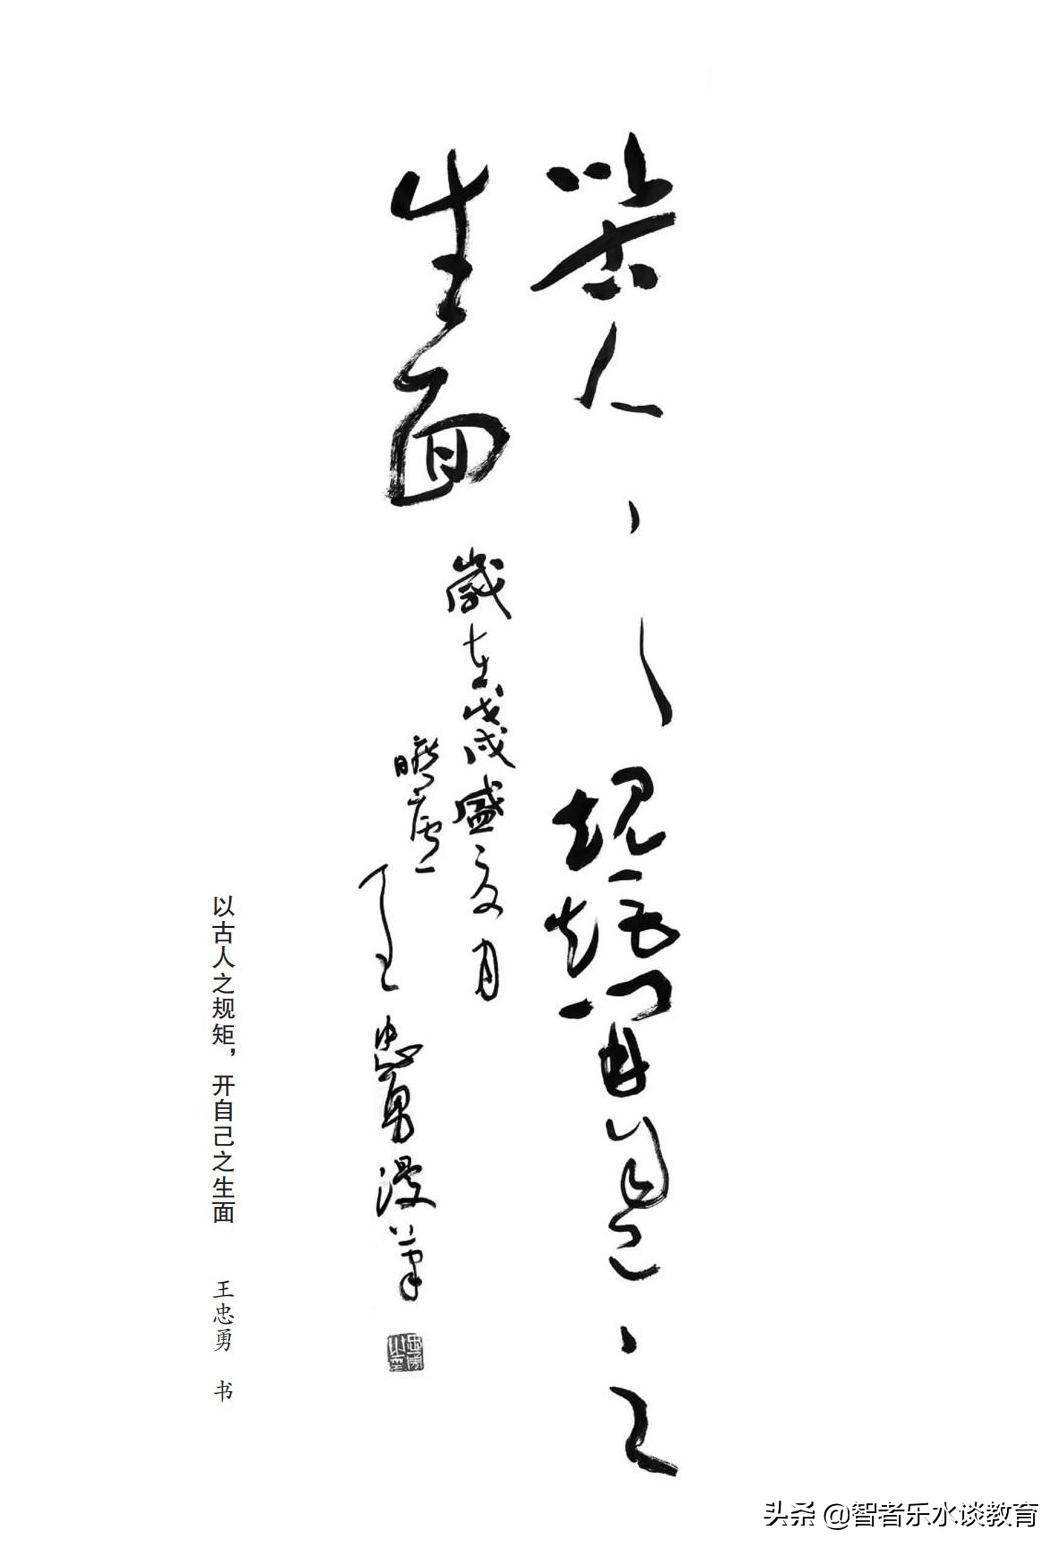 以古人之規矩開自己之
生面
歲在戊戌盛夏月
王忠勇漫筆
以古人之规矩，开自己之生面 王忠勇 书
头条 @智者乐水谈教育